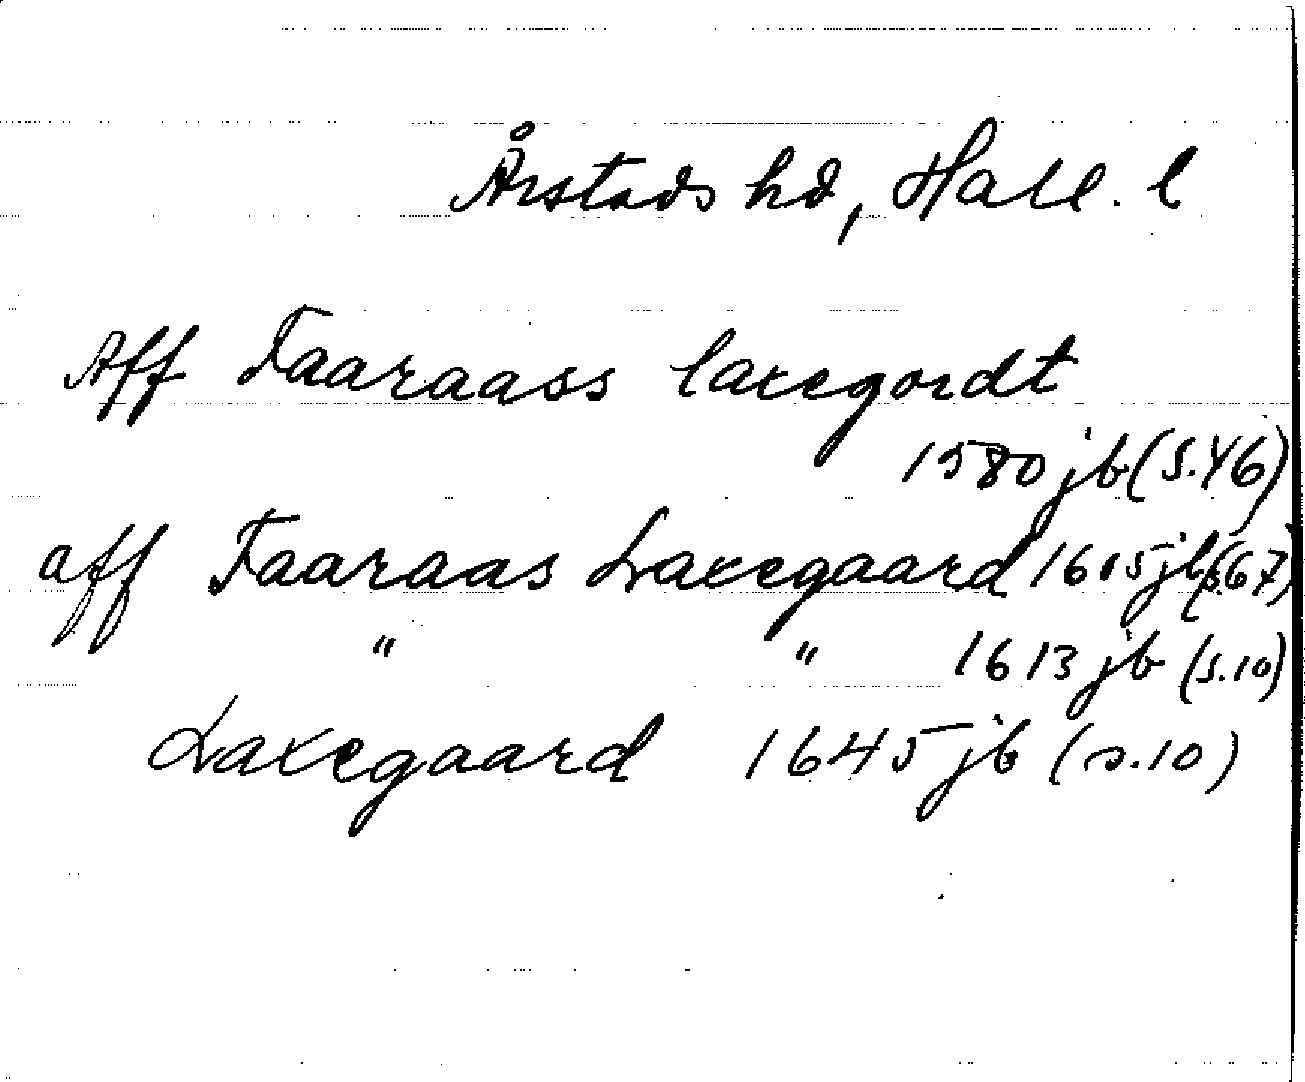 Årstads hd, Hall. l
Aff Faaraass laxegordt
1580 jb (s.46)
aff Faaraas Laxegaard 1605 jb (s.67)
" " 1613 jb (s.10)
Laxegaard 1645 jb (s.10)